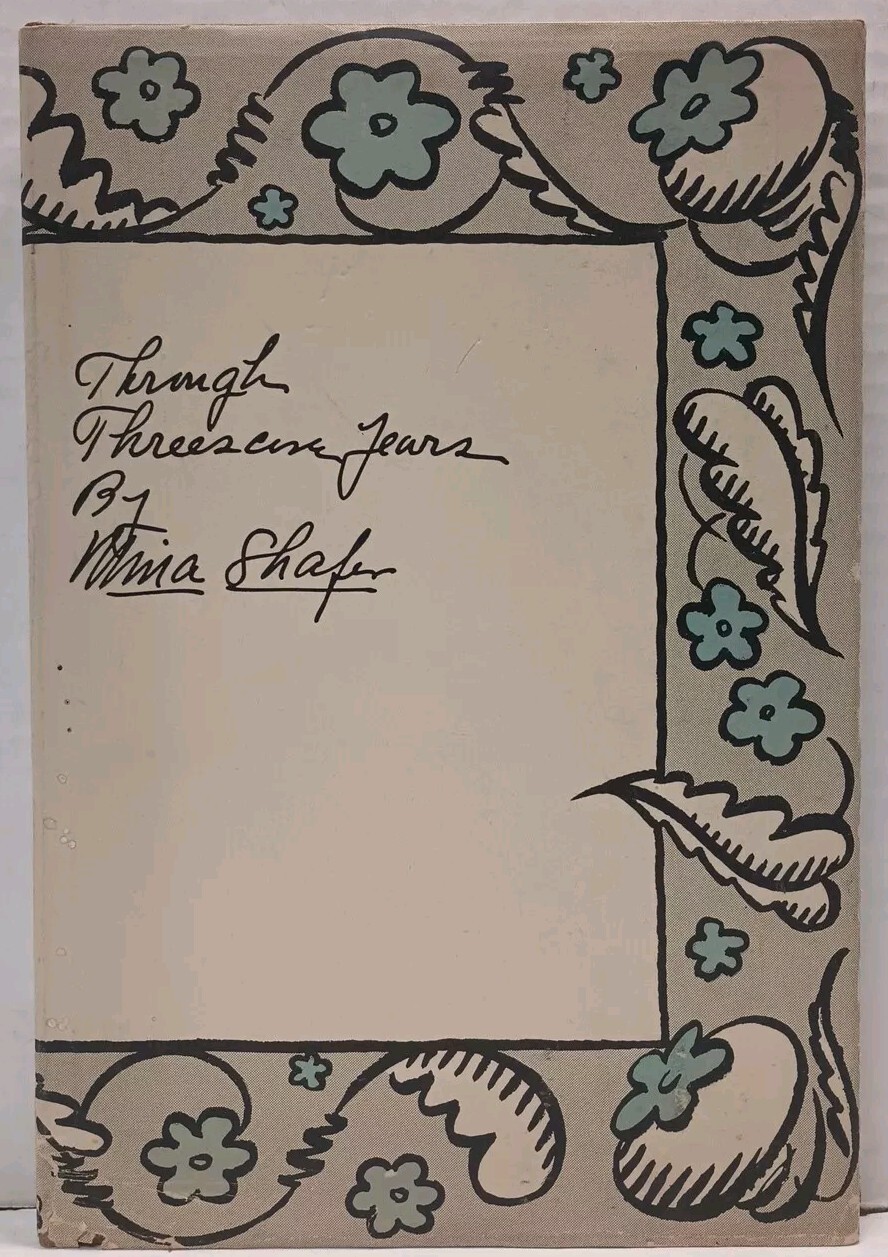 Through
Threescore Years
By
Mina Shafer